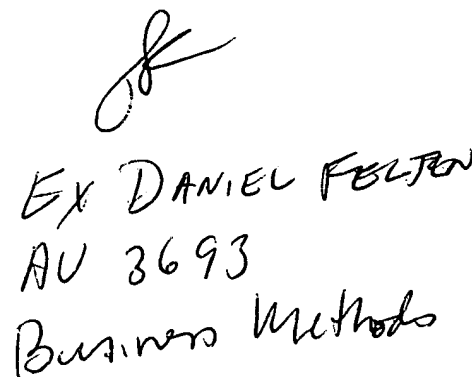 EX DANIEL FELTEN
AU 3693
Business Methods